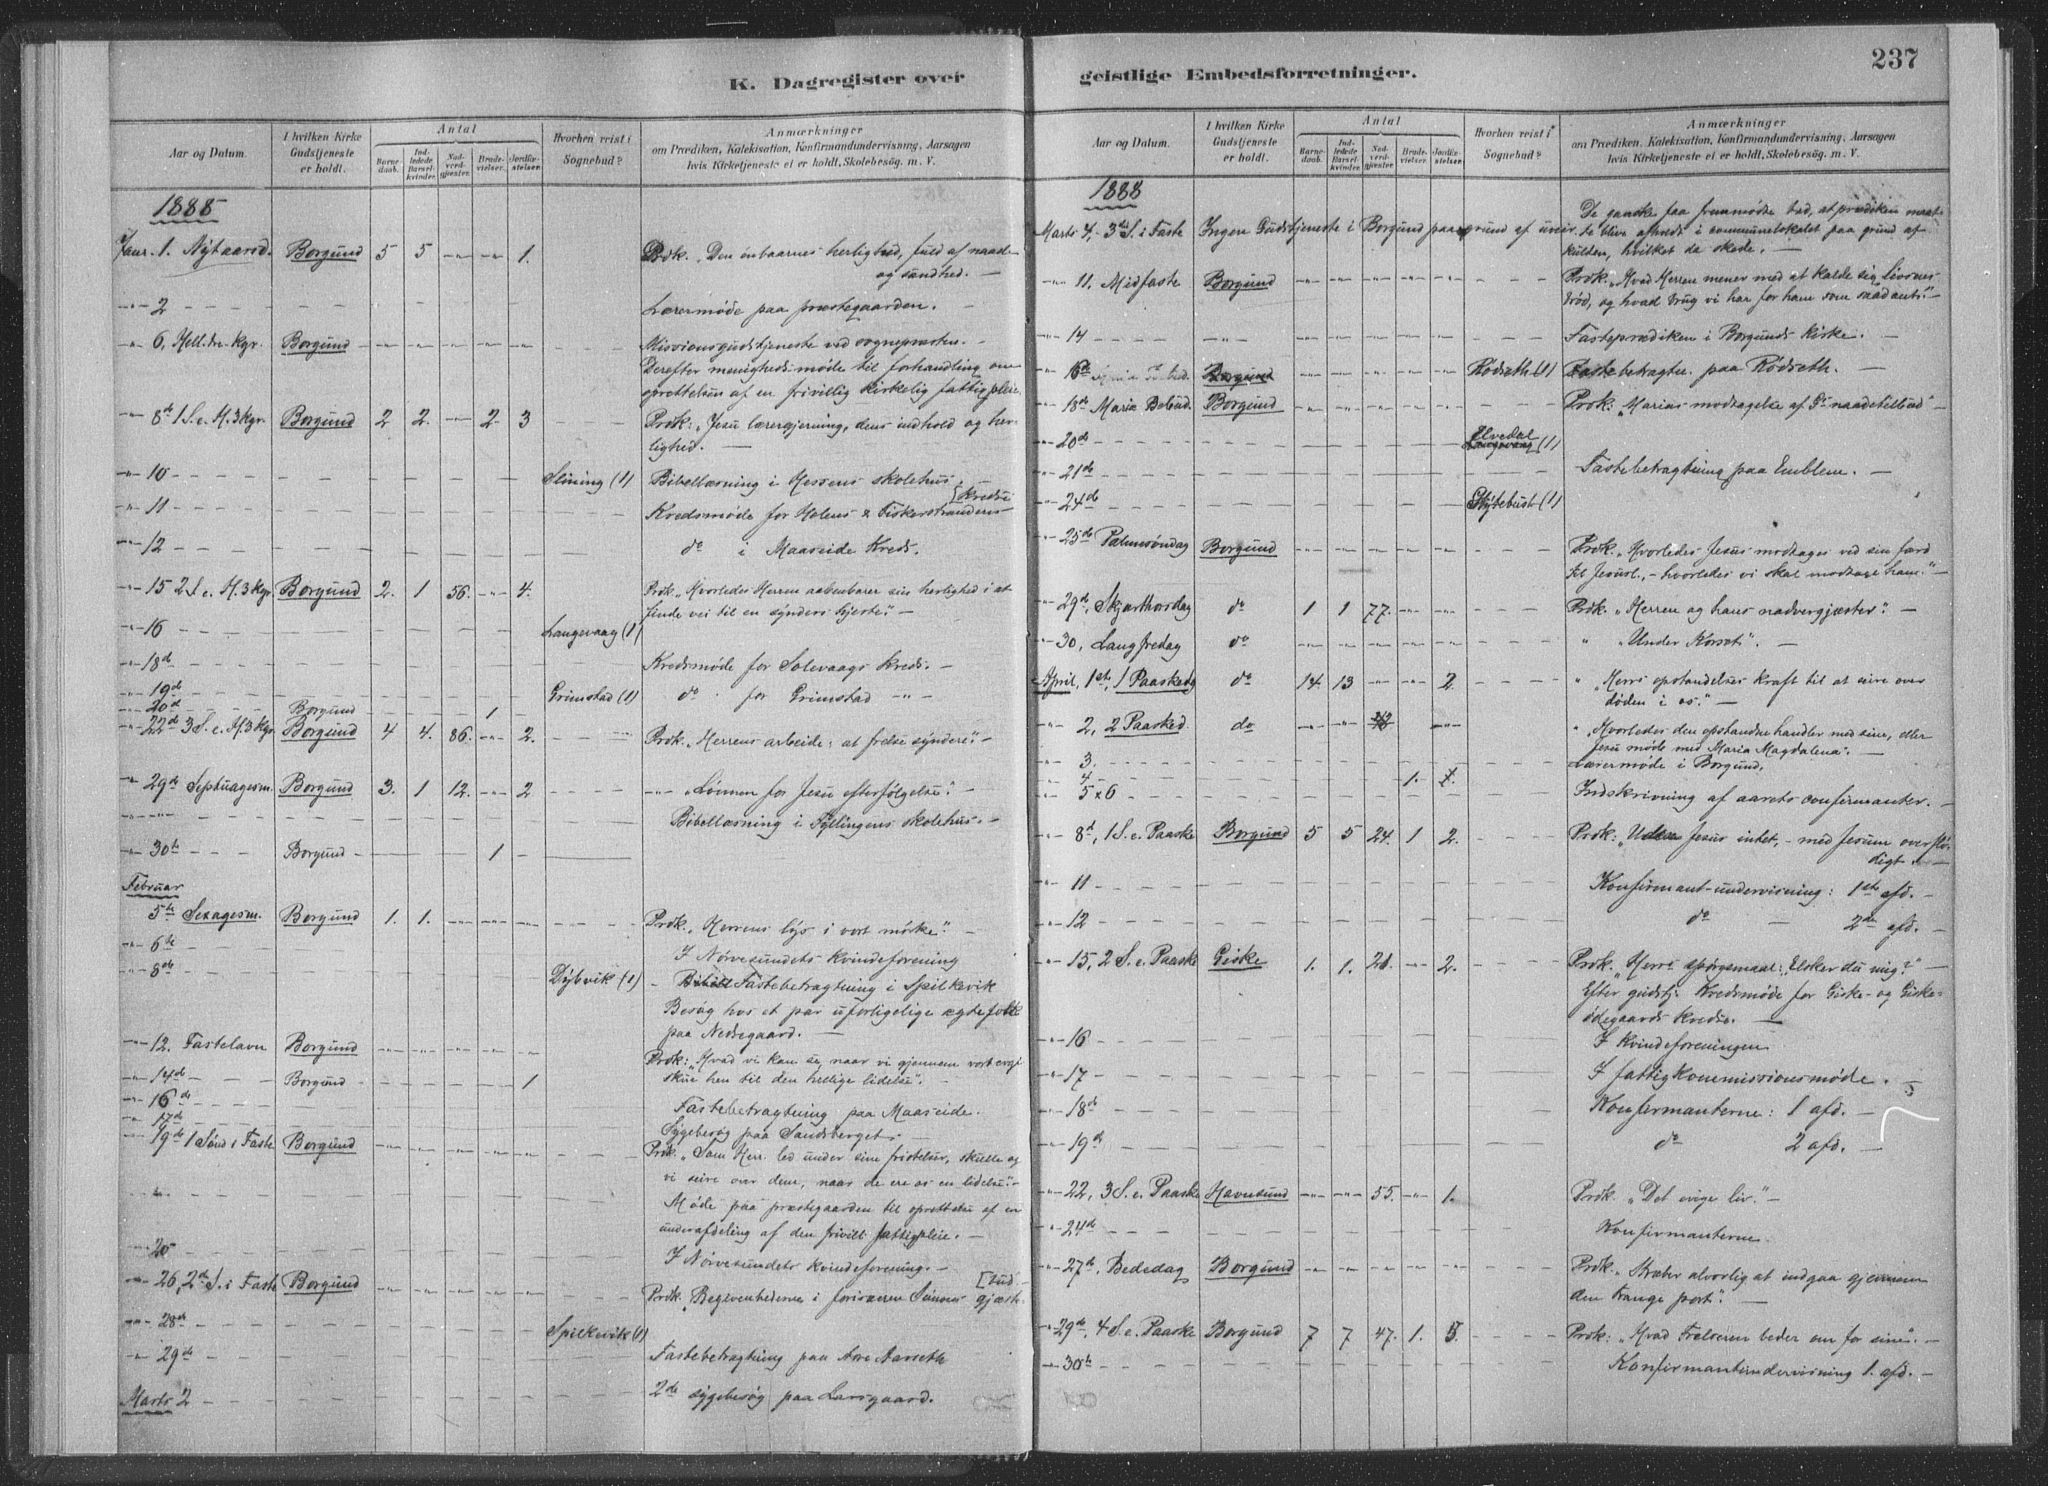 K. Dagregister over
Aar og Datum.
I hvilken Kirke Gudstjeneste er holdt.
Antal
Barnedaab.
Indledede Barselkvinder.
Nadvergjæster.
Brudevielser.
Jordfæstelser.
Hvorhen reist i Sognebud?
Anmærkninger
om Prædiken, Katekisation, Konfirmandundervisning, Aarsagen
hvis Kirketjeneste ei er holdt, Skolebesøg. m. V.
1888
Janr. 1. Nytaarsd. Borgund 5 5 -"- -"- 1. Prdk. "Den énbaarnes herlighed, fuld af naade
og sandhed. —
-"- 2 Lærermøde paa præstegaarden. —
-"- 6, Hell. tre. kgr. Borgund Missionsgudstjeneste ved sognepræsten. —
Derefter menighedsmøde til forhandling om
oprettelsen af en frivillig kirkelig fattigpleie
-"- 8de 1 S. e. H. 3 kgr. Borgund 2 2. -"- 2. 3 Prdk: "Jesu lærergjerning, dens indhold og her-
lighed. —
-"- 10 Slining (1) Bibellæsning i Hessens skolehus. —
-"- 11 Kredsmøde for Holens & Fiskerstrandens [Kredse
-"- 12 do i Maaseide Kreds.
-"- 15 2 S. e. H. 3 kgr. Borgund 2. 1 56. -"- 4. Prdk "Hvorledes Herren aabenbarer sin herlighed i at
finde vei til en synders hjerte" —
-"- 16 Langevaag (1)
-"- 18de Kredsmøde for Solevaags Kreds. —
-"- 19de Grimstad (1) do for Grimstad -"-
-"- 20de Borgund 1
-"- 22de 3 S. e. H. 3 kgr. Borgund 4 4. 86. -"- 2. Prdk. "Herrens arbeide: at frelse syndere". —
-"- 29de Septuagesm. Borgund 3. 1 12. -"- 2 -"- "Lønnen for Jesu efterfølgelse". —
Bibellæsning i Fyllingens skolehus. —
-"- 30te Borgund 1
Februar
5te Sexagesm. Borgund 1. 1. -"- -"- -"- Prdk. "Herrens lys i vort mørke". —
-"- 6te I Nørvesundets Kvindeforening
-"- 8de Dybvik (1) Fastebetragtning i Spilkevik
Besøg hos et par uforligelige ægtefolk
paa Nedregaard. —
-"- 12. Fastelavn Borgund Prdk: "Hvad vi kan se, naar vi gjennem vort evgl.
skue hen til den hellige lidelse". —
-"- 14de Borgund 1
-"- 16de Fastebetragtning paa Maaseide.
-"- 17de Sygebesøg paa Sandsberget.
-"- 19de 1 Sønd i Faste Borgund Prdk. "Som Herr. led under sine fristelser, skulle og
vi seire over dem, naar de ere os en lidelse". —
Møde paa præstegaarden til oprettelse af en
underafdeling af den frivill. fattigpleie. —
-"- 20 I Nørvesundets kvindeforening. —
-"- 26, 2den S. i Faste Borgund Prdk. "Begivenhederne i forisæren Simons [gud-
gjæsteb.
-"- 28de Spilkevik (1)
-"- 29de Fastebetragtning paa Aarseth
Marts 2 2de sygebesøg paa Larsgaard.
geistlige Embedsforretninger.
237
Aar og Datum.
I hvilken Kirke Gudstjeneste er holdt.
Antal
Barnedaab.
Indledede Barselkvinder.
Nadvergjæster.
Brudevielser.
Jordfæstelser.
Hvorhen reist i Sognebud?
Anmærkninger
om Prædiken, Katekisation, Konfirmandundervisning, Aarsagen
hvis Kirketjeneste ei er holdt, Skolebesøg. m. V.
1888
Marts 4, 3die S. i Faste Ingen Gudstjeneste i Borgund paa grund af uveir. De ganske faa fremmødte bad, at prædiken maat-
te blive afholdt i communelokalet paa grund af
kulden, hvilket da skede. —
-"- 11, Midfaste Borgund Prdk. "Hvad Herren mener med at kalde sig livsens
brød, og hvad brug vi har for ham som saadant". —
-"- 14 Fasteprædiken i Borgunds Kirke. —
-"- 16de Borgund Rødseth (1) Fastebetragtn. paa Rødseth. —
-"- 18de Mariæ Bebud. Borgund Prdk: "Marias modtagelse af Gs naadetilbud" —
-"- 20de Elvedal (1)
-"- 21de Fastebetragtning paa Emblem. —
-"- 24de Skytebust (1)
-"- 25de Palmesøndag Borgund Prdk. "Hvorledes Jesus modtages ved sin færd
til Jerusl., - hvorledes vi skal modtage ham." —
-"- 29de, Skjærthorsdag do 1 1 77. -"- -"- Prdk. "Herren og hans nadvergjæster". —
-"- 30, Langfredag do " "Under Korset". —
April, 1ste, 1 Paaskedg do 14. 13 -"- -"- 2. " "Herrs opstandelses kraft til at seire over
døden i os". —
-"- 2, 2 Paasked. do " "Hvorledes den opstandne handler med sine, eller
Jesu møde med Maria Magdalena". —
-"- 3. Lærermøde i Borgund.
-"- 4 1. 1.
-"- 5 x 6 Indskrivning af aarets confirmanter. —
-"- 8de, 1 S. e. Paaske Borgund 5 5 24. 1 2. Prdk: "Uden Jesus intet, - med Jesum overflø-
digt". —
-"- 11 Konfirmant-undervisning: 1ste afd. —
-"- 12 do — 2den afd. —
-"- 15, 2 S. e. Paaske Giske 1. 1. 21. -"- 2. Prdk. "Herrs spørgsmaal: "Elsker du mig?" —
Efter gudstj. Kredsmøde for Giske- og Giske-
ødegaards kredse. —
-"- 16 I kvindeforeningen
-"- 17 I fattigkommissionsmøde. —
-"- 18de Konfirmanterne: 1 afd. —
-"- 19de do 2 afd. —
-"- 22, 3 S. e. Paaske Havnsund -"- -"- 55. -"- 1. Prdk. "Det evige liv." —
-"- 24de Konfirmanterne
-"- 27de, Bededag Borgund Prdk. "Stræber alvorlig at indgaa gjennem
den trange port". —
-"- 29de, 4 S. e. Paaske Borgund 7 7 47. 1. 5. Prdk: "Hvad Frelseren beder om for sine". —
-"- 30te Konfirmantundervisning 1. afd. —